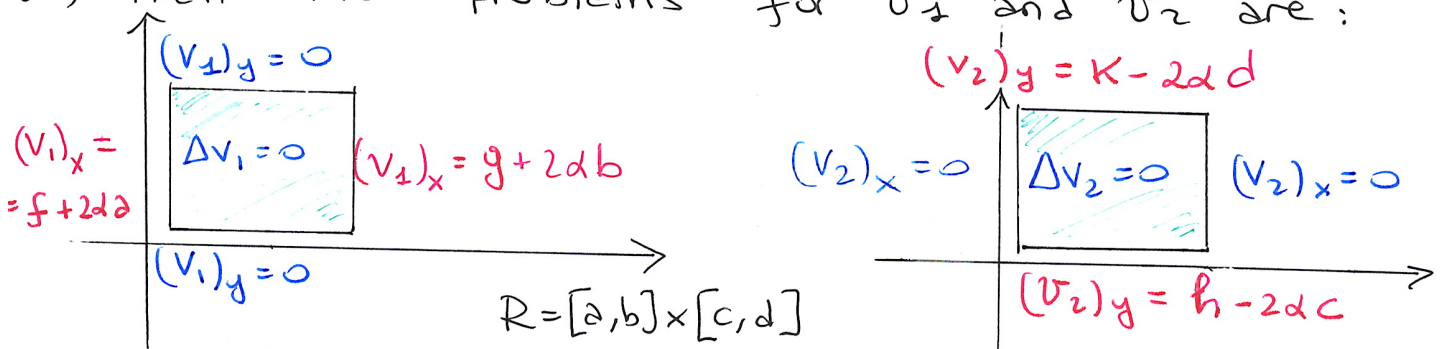 problems for v₁ and v₂ are:
(v₁)y = 0
(v₁)x =
= f + 2αa
Δv₁ = 0
(v₁)x = g + 2αb
(v₁)y = 0
R = [a,b] × [c,d]
(v₂)y = K - 2αd
(v₂)x = 0
Δv₂ = 0
(v₂)x = 0
(v₂)y = h - 2αc